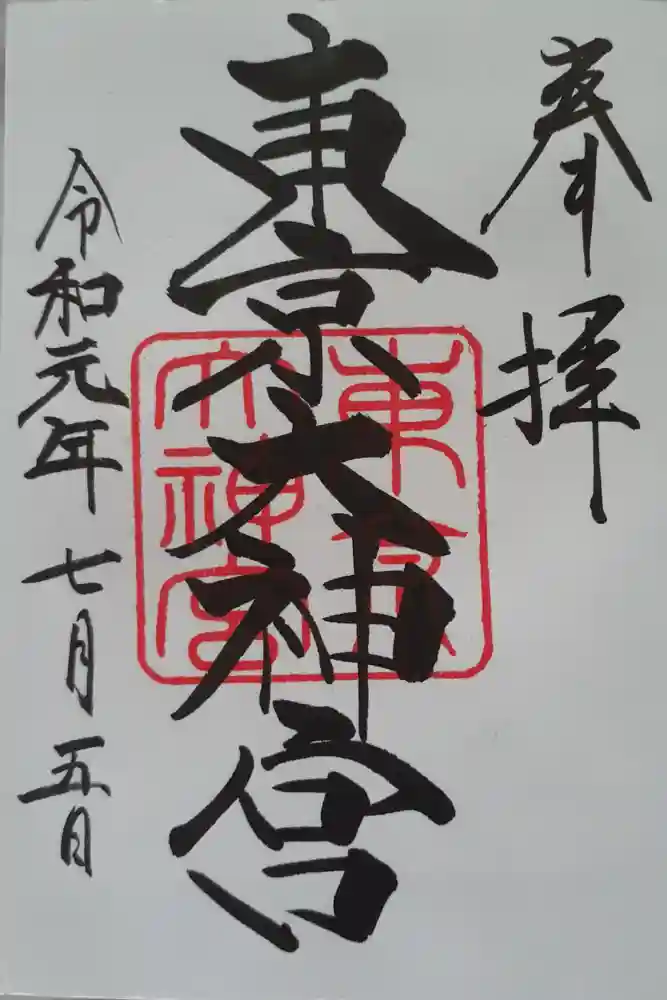 奉拝
東京大神宮
東京
大神宮
令和元年七月五日